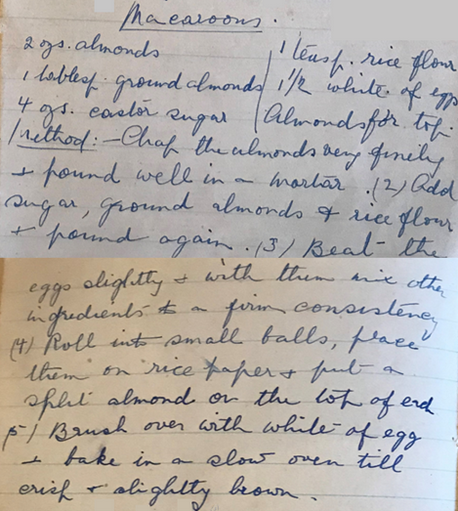 Macaroons.
2 ozs. almonds
1 tablesp. ground almonds
4 ozs. castor sugar
1 teasp. rice flour
1 1/2 white of eggs
Almonds for top.
Method:- Chop the almonds very finely
+ pound well in a mortar. (2) Add
sugar, ground almonds & rice flour
+ pound again. (3) Beat the
eggs slightly + with them mix other
ingredients to a firm consistency
(4) Roll into small balls, place
them on rice paper + put a
split almond on the top of each
5) Brush over with white of egg
+ bake in a slow oven till
crisp + slightly brown.